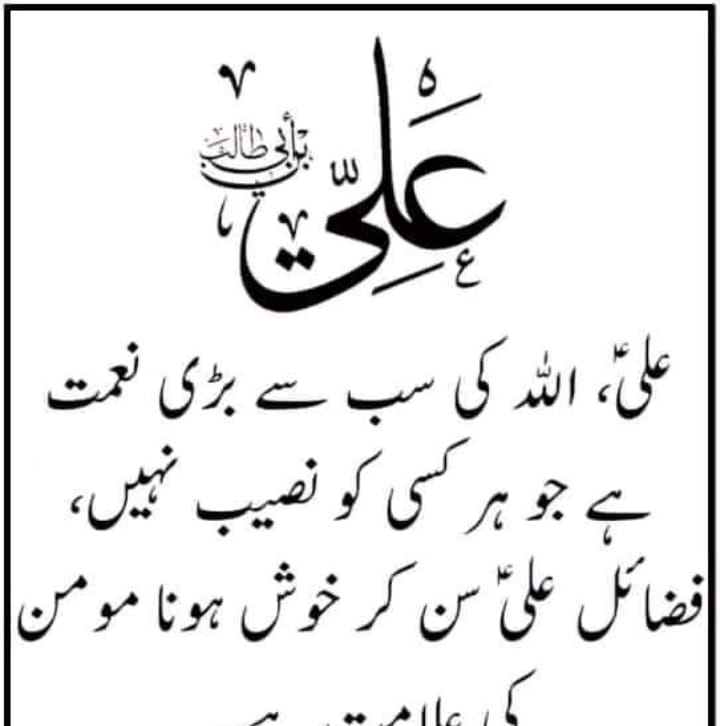 عَلِيّ
بن أبي طالب
علیؑ، اللہ کی سب سے بڑی نعمت
ہے جو ہر کسی کو نصیب نہیں،
فضائل علیؑ سن کر خوش ہونا مومن
کی علامت ہے